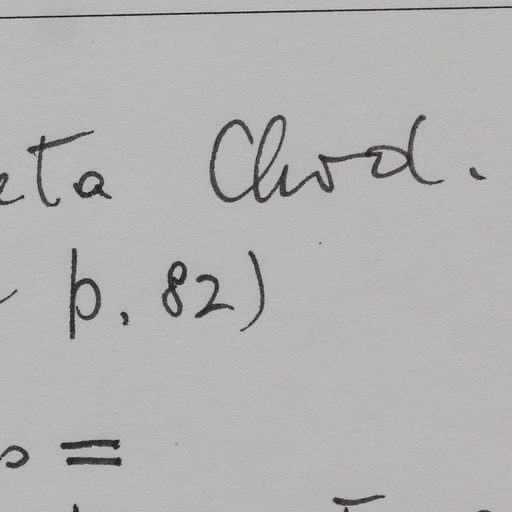 eta Chod.
p. 82)
o =